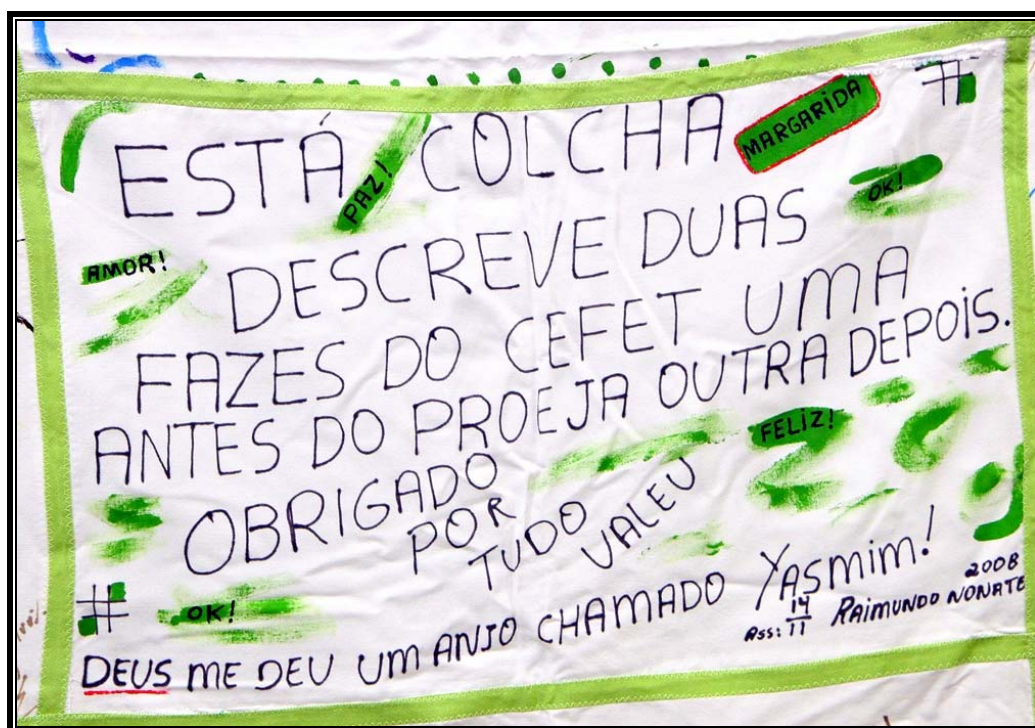 ESTÁ COLCHA MARGARIDA
PAZ!
OK!
AMOR!
DESCREVE DUAS
FAZES DO CEFET UMA
ANTES DO PROEJA OUTRA DEPOIS.
FELIZ!
OBRIGADO
POR
TUDO
VALEU
OK!
DEUS ME DEU UM ANJO CHAMADO YASMIM!
2008
ASS: 14/11 RAIMUNDO NONATE